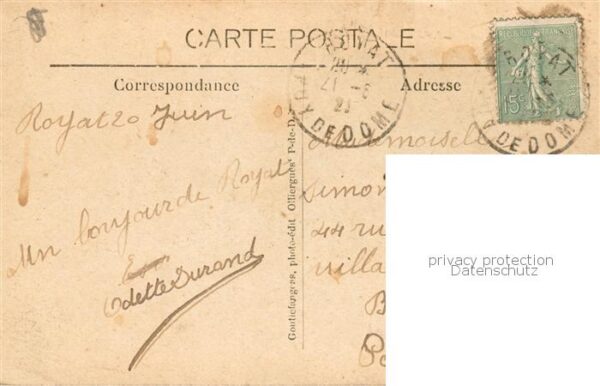 CARTE POSTALE
Correspondance
Adresse
ROYAT
21 -6
PUY DE DOME
REPUBLIQUE FRANÇAISE
15c
ROYAT
DE DOME
Royat 20 Juin
Un bonjour de Royat
Odette Durand
Goutefangeas, photo-édit Olliergues P.-de-D.
Mademoiselle
Simon
44 ru
villa
B
Pa
privacy protection
Datenschutz